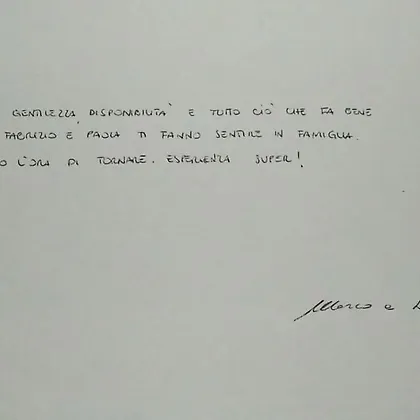 GENTILEZZA, DISPONIBILITÀ E TUTTO CIÒ CHE FA BENE
FABRIZIO E PAOLA TI FANNO SENTIRE IN FAMIGLIA.
O L'ORA DI TORNARE. ESPERIENZA SUPER!
Marco e